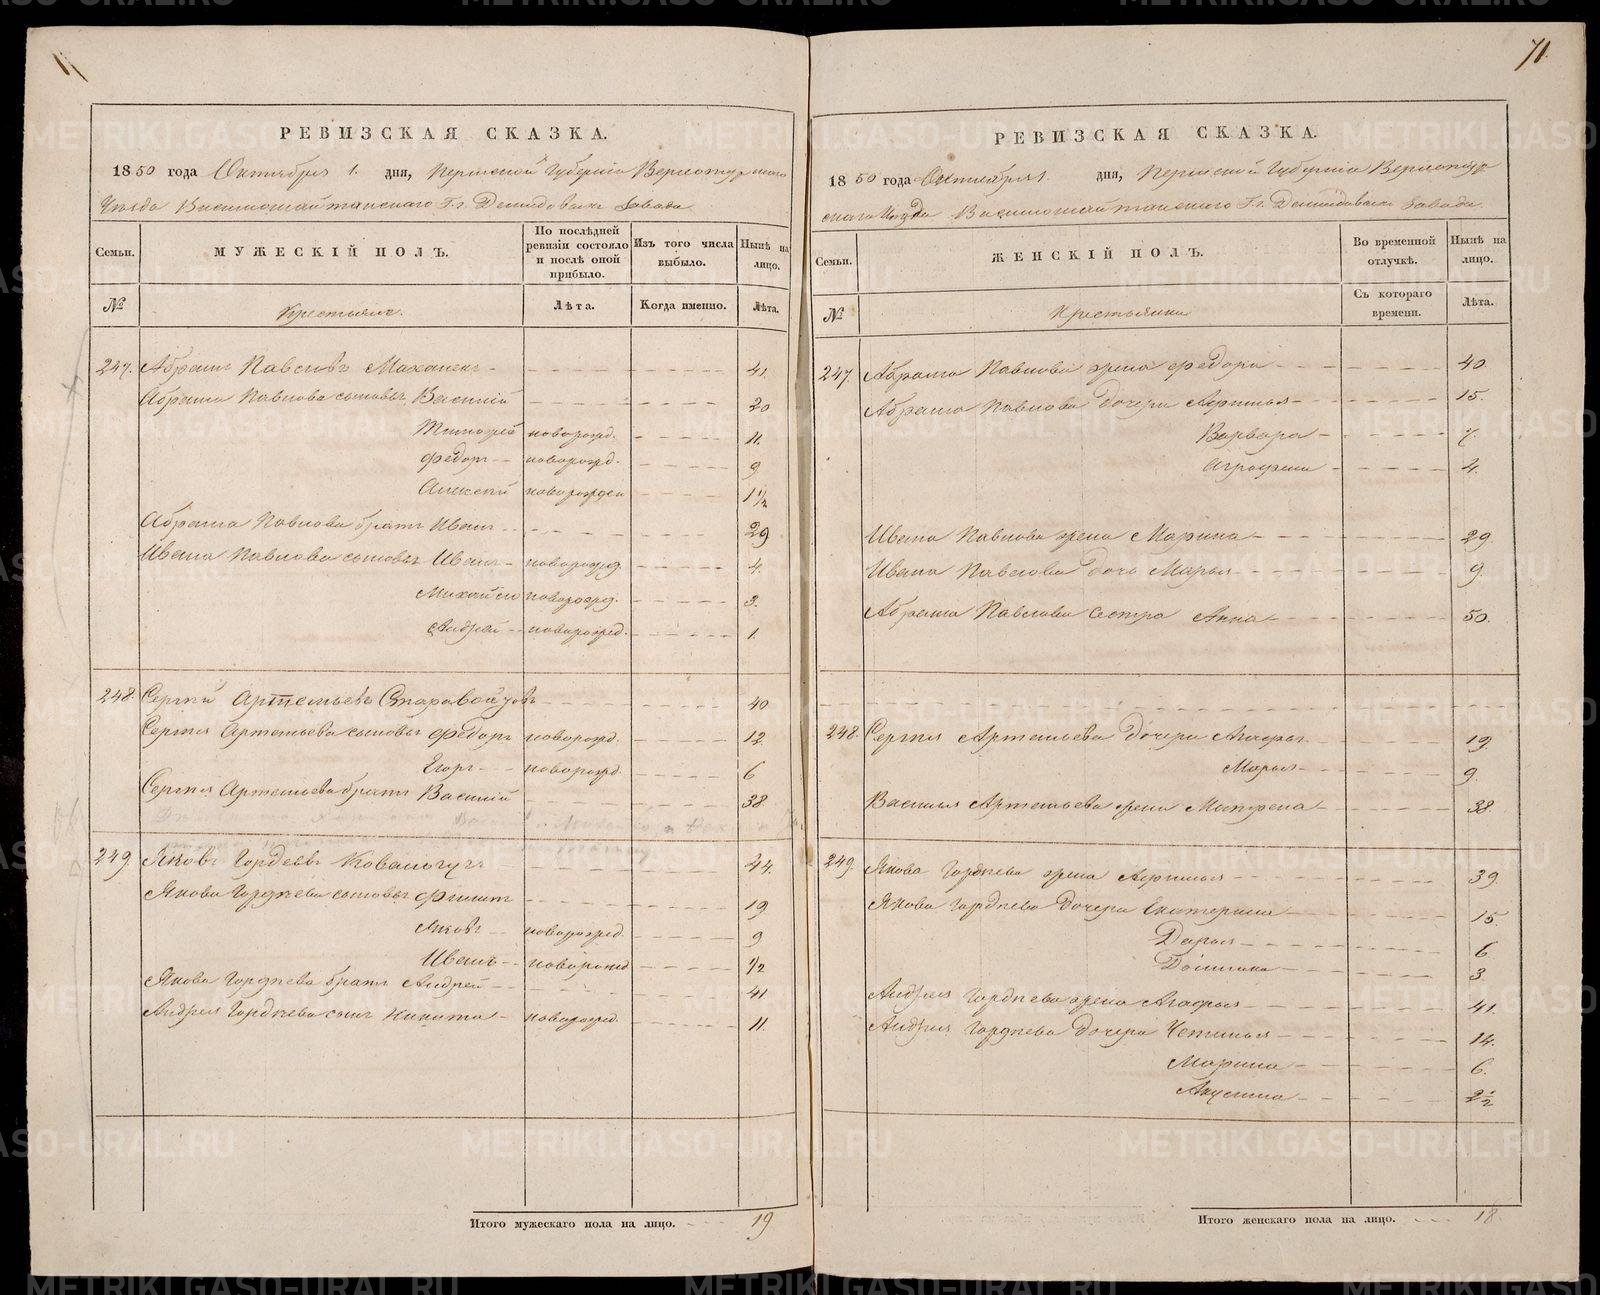 71.
РЕВИЗСКАЯ СКАЗКА.
1850 года Октября 1. дня, Пермской Губерніи Верхотурскаго
Уѣзда Висимошайтанскаго Г.г. Демидовыхъ Завода
Семьи.
МУЖЕСКІЙ ПОЛЪ.
По послѣдней ревизіи состояло и послѣ оной прибыло.
Изъ того числа выбыло.
Нынѣ на лицо.
№
Крестьянъ.
Лѣта.
Когда именно.
Лѣта.
247. Абрамъ Павловъ 41.
Абрама Павлова сыновья Василій 20
Тимофей новорожд. 11.
Федоръ новорожд. 9
Алексей новорожден 1 1/2
Абрама Павлова братъ Иванъ 29
Ивана Павлова сыновья Иванъ новорожд. 4.
Михайло новорожд. 3.
Андрей новорожд. 1.
248. Сергей Артемьевъ 40
Сергея Артемьева сыновья Федоръ новорожд. 12
Егоръ новорожд. 6
Сергея Артемьева братъ Василій 38
249. Яковъ Гордеевъ Ковальчукъ 44.
Якова Гордѣева сыновья Филипъ 19
Яковъ новорожд. 9
Иванъ новорожд 1/2
Якова Гордѣева братъ Андрей 41
Андрея Гордѣева сынъ Никита новорожд. 11.
Итого мужескаго пола на лицо. 19
РЕВИЗСКАЯ СКАЗКА.
1850 года Октября 1. дня, Пермской Губерніи Верхотур
скаго Уѣзда Висимошайтанскаго Г.г. Демидовыхъ Завода.
Семьи.
ЖЕНСКІЙ ПОЛЪ.
Во временной отлучкѣ.
Нынѣ на лицо.
№
Крестьянки
Съ котораго времени.
Лѣта.
247. Абрама Павлова жена Федора 40.
Абрама Павлова дочери 15.
Варвара 7.
Аграфена 4.
Ивана Павлова жена Марина 29.
Ивана Павлова дочь Марья 9.
Абрама Павлова сестра Анна 50.
248. Сергея Артемьева дочери Агафья 19.
Марья 9.
Василья Артемьева жена Матрена 38.
249. Якова Гордѣева жена 39
Якова Гордѣева дочери Екатерина 15
Дарья 6
Домника 3
Андрея Гордѣева жена Агафья 41.
Андрея Гордѣева дочери 14.
Марина 6.
Акулина 2 1/2
Итого женскаго пола на лицо. 18.
METRIKI.GASO-URAL.RU